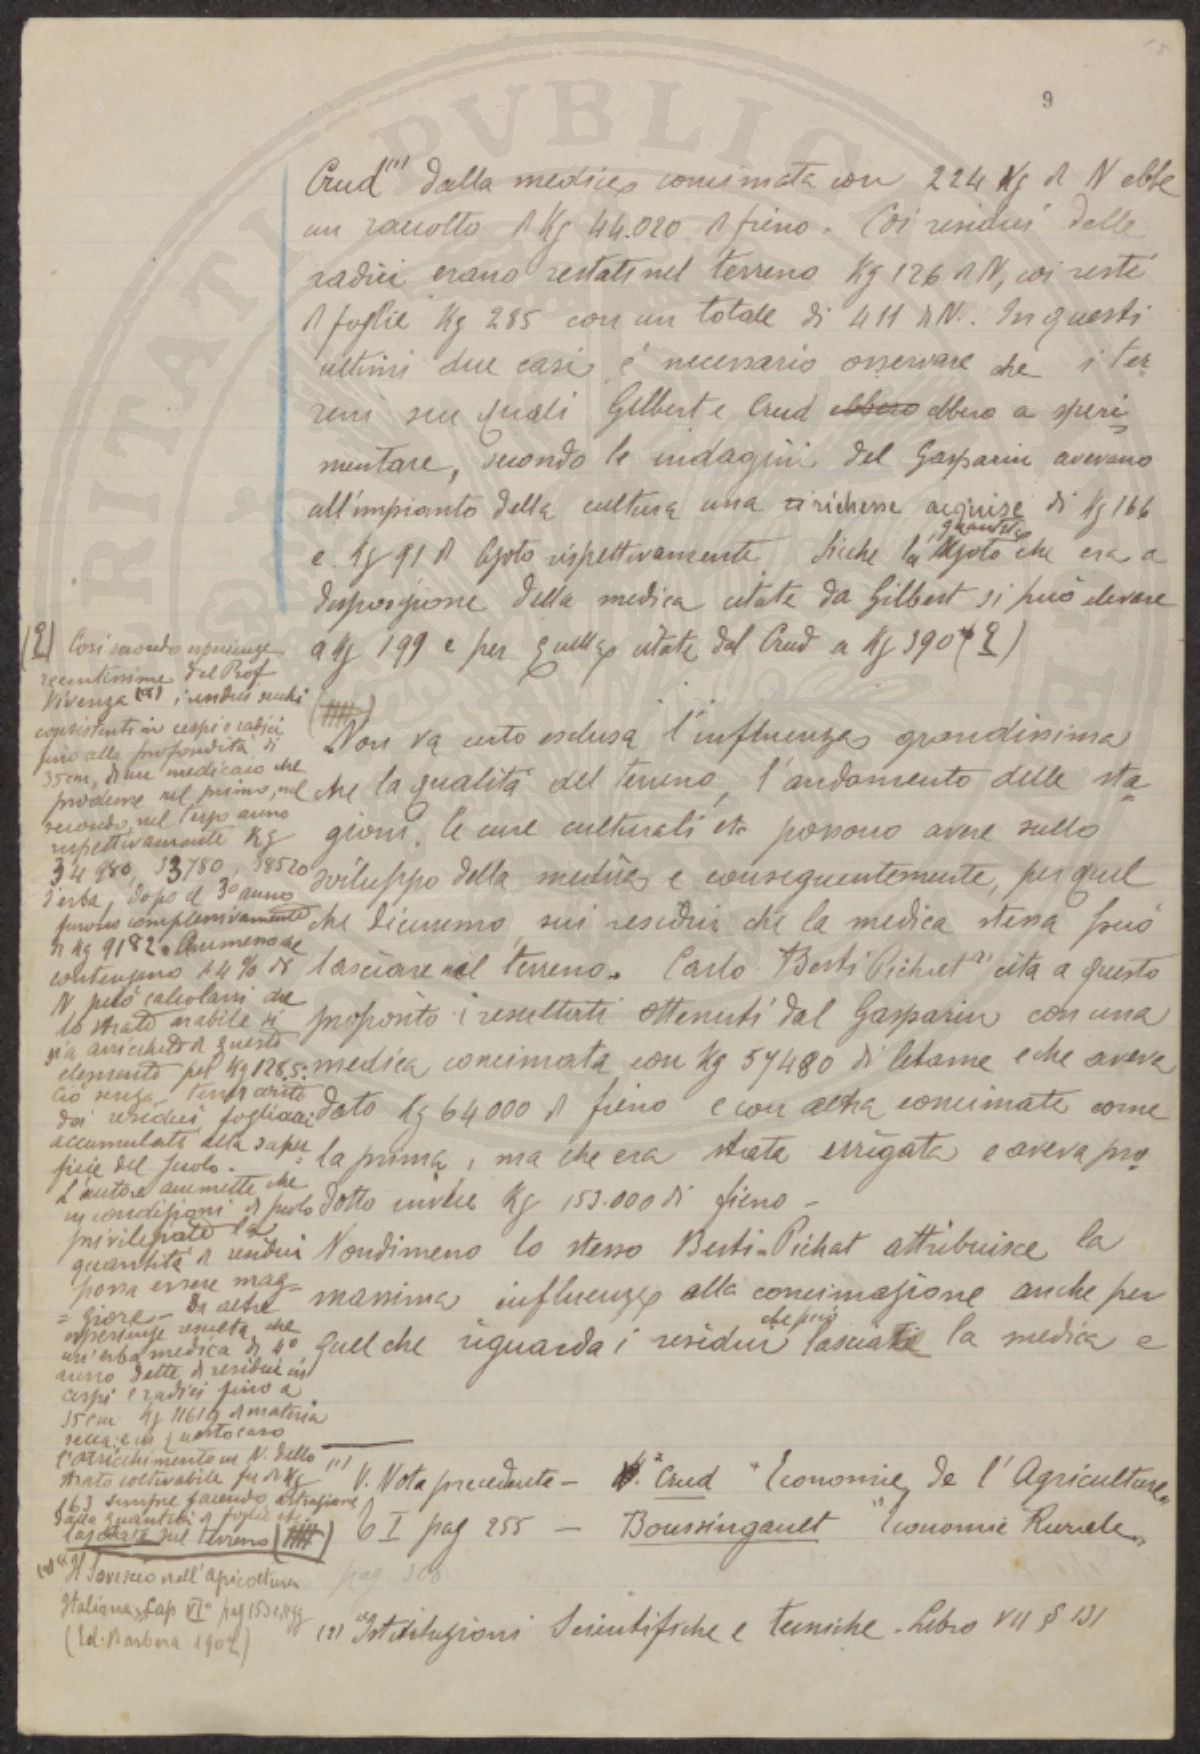 9
Crud (1) dalla medica concimata con 224 Kg di N ebbe
un raccolto di Kg 44.020 di fieno. Coi residui delle
radici erano restati nel terreno Kg 126 di N, coi resti
di foglie Kg 285 con un totale di 411 di N. In questi
ultimi due casi è necessario osservare che i ter-
reni sui quali Gilbert e Crud ebbero ebbero a speri-
mentare, secondo le indagini del Gasparin avevano
all'impianto della cultura una richesse acquise di Kg 166
e Kg 91 di Azoto rispettivamente. Sicche la quantità
Azoto che era a
disposizione della medica citata da Gilbert si può elevare
a Kg 199 e per quella citata dal Crud a Kg 390 (2)
Non va certo esclusa l'influenza grandissima
che la qualità del terreno, l'andamento delle sta-
gioni, le cure culturali etc possono avere sullo
sviluppo della medica e conseguentemente, per quel
che diceremo, sui residui che la medica stessa può
lasciare nel terreno. Carlo Berti Pichat (2) cita a questo
proposito i resultati ottenuti dal Gasparin con una
medica concimata con Kg 57480 di letame e che aveva
dato Kg 64.000 di fieno e con altra concimata come
la prima, ma che era stata irrigata e aveva pro-
dotto invece Kg 153.000 di fieno -
Nondimeno lo stesso Berti-Pichat attribuisce la
massima influenza alla concimazione anche per
quel che riguarda i residui che può lasciare la medica e
(2) Cosi secondo esperienze
recentissime del Prof
Vivenza (a) i residui secchi
consistenti in cespi e radici
fino alla profondità di
35 cm, di un medicaio che
produsse nel primo, nel
secondo, nel terzo anno
rispettivamente Kg
34980, 33780, 38520
d'erba, dopo il 3° anno
furono complessivamente
di Kg 9182. Ammesso che
contengano 1.4% di
N può calcolarsi che
lo strato arabile si
sia arricchito di questo
elemento per Kg 128.5:
ciò senza tener conto
dei residui fogliacei
accumulati alla super-
ficie del suolo.
L'autore ammette che
in condizioni di suolo
privilegiato la
quantità di residui
possa essere mag-
=giore - Da altre
esperienze resulta che
un'erba medica di 4°
anno dette di residui in
cespi e radici fino a
35 cm Kg 11619 di materia
secca; e in questo caso
l'arricchimento in N. dello
strato coltivabile fu di Kg
163 sempre facendo astrazione
dalla quantità di foglie che
lasciate sul terreno
(a) "Il Sovescio nell'Agricoltura
Italiana" Cap VI° pag 153 e segg
(Ed. Barbera 1902)
(1) V. Nota precedente - Crud "Economie de l'Agriculture"
T I pag 255 - Boussingault "Economie Rurale"
pag 308
(2) "Istituzioni Scientifiche e tecniche. Libro VII § 131